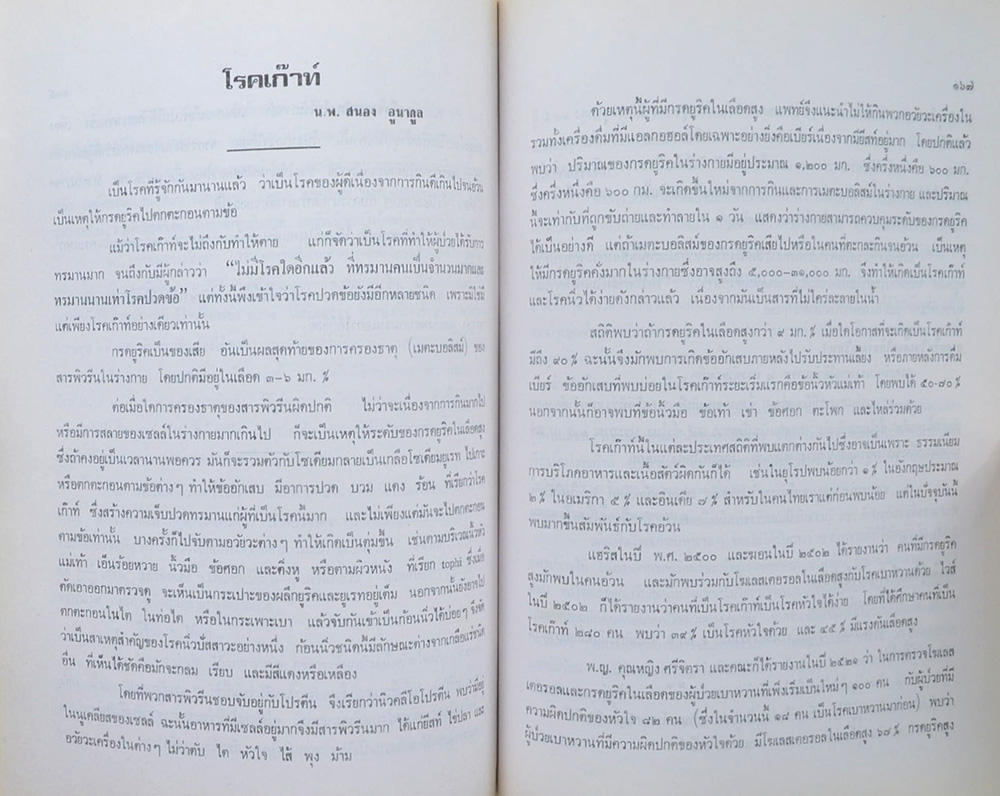 โรคเก๊าท์
น.พ. สนอง อูนากูล
เป็นโรคที่รู้จักกันมานานแล้ว ว่าเป็นโรคของผู้ดีเนื่องจากการกินดีเกินไปจนอ้วน
เป็นเหตุให้กรดยูริคไปตกตะกอนตามข้อ
แม้ว่าโรคเก๊าท์จะไม่ถึงกับทำให้ตาย แต่ก็จัดว่าเป็นโรคที่ทำให้ผู้ป่วยได้รับการ
ทรมานมาก จนถึงกับมีผู้กล่าวว่า “ไม่มีโรคใดอีกแล้ว ที่ทรมานคนเป็นจำนวนมากและ
ทรมานนานเท่าโรคปวดข้อ” แต่ทั้งนี้พึงเข้าใจว่าโรคปวดข้อยังมีอีกหลายชนิด เพราะมิใช่มี
แต่เพียงโรคเก๊าท์อย่างเดียวเท่านั้น
กรดยูริคเป็นของเสีย อันเป็นผลสุดท้ายของการครองธาตุ (เมตะบอลิสม์) ของ
สารพิวรีนในร่างกาย โดยปกติมีอยู่ในเลือด ๓-๖ มก. %
ต่อเมื่อใดการครองธาตุของสารพิวรีนผิดปกติ ไม่ว่าจะเนื่องจากการกินมากไป
หรือมีการสลายของเซลล์ในร่างกายมากเกินไป ก็จะเป็นเหตุให้ระดับของกรดยูริคในเลือดสูง
ซึ่งถ้าคงอยู่เป็นเวลานานพอควร มันก็จะรวมตัวกับโซเดียมกลายเป็นเกลือโซเดียมยูเรท ไปเกาะ
หรือตกตะกอนตามข้อต่างๆ ทำให้ข้ออักเสบ มีอาการปวด บวม แดง ร้อน ที่เรียกว่าโรค
เก๊าท์ ซึ่งสร้างความเจ็บปวดทรมานแก่ผู้ที่เป็นโรคนี้มาก และไม่เพียงแต่มันจะไปตกตะกอน
ตามข้อเท่านั้น บางครั้งก็ไปจับตามอวัยวะต่างๆ ทำให้เกิดเป็นตุ่มขึ้น เช่นตามบริเวณนิ้วหัว
แม่เท้า เอ็นร้อยหวาย นิ้วมือ ข้อศอก และติ่งหู หรือตามผิวหนัง ที่เรียก tophi ซึ่งเมื่อ
ตัดเอาออกมาตรวจดู จะเห็นเป็นกระเปาะของผลึกยูริคและยูเรทอยู่เต็ม นอกจากนั้นยังอาจไป
ตกตะกอนในไต ในท่อไต หรือในกระเพาะเบา แล้วจับกันเข้าเป็นก้อนนิ่วได้บ่อยๆ จึงจัด
ว่าเป็นสาเหตุสำคัญของโรคนิ่วปัสสาวะอย่างหนึ่ง ก้อนนิ่วชนิดนี้มีลักษณะต่างจากเกลือแร่ชนิด
อื่น ที่เห็นได้ชัดคือมักจะกลม เรียบ และมีสีแดงหรือเหลือง
โดยที่พวกสารพิวรีนชอบจับอยู่กับโปรตีน จึงเรียกว่านิวคลีโอโปรตีน พบว่ามีอยู่
ในนูเคลียสของเซลล์ ฉะนั้นอาหารที่มีเซลล์อยู่มากจึงมีสารพิวรีนมาก ได้แก่ยีสท์ ไข่ปลา และ
อวัยวะเครื่องในต่างๆ ไม่ว่าตับ ไต หัวใจ ไส้ พุง ม้าม
๑๖๗
ด้วยเหตุนี้ผู้ที่มีกรดยูริคในเลือดสูง แพทย์จึงแนะนำไม่ให้กินพวกอวัยวะเครื่องใน
รวมทั้งเครื่องดื่มที่มีแอลกอฮอล์โดยเฉพาะอย่างยิ่งคือเบียร์เนื่องจากมียีสท์อยู่มาก โดยปกติแล้ว
พบว่า ปริมาณของกรดยูริคในร่างกายมีอยู่ประมาณ ๑,๒๐๐ มก. ซึ่งครึ่งหนึ่งคือ ๖๐๐ มก.
ซึ่งครึ่งหนึ่งคือ ๖๐๐ กม. จะเกิดขึ้นใหม่จากการกินและการเมตะบอลิสม์ในร่างกาย และปริมาณ
นี้จะเท่ากับที่ถูกขับถ่ายและทำลายใน ๑ วัน แสดงว่าร่างกายสามารถควบคุมระดับของกรดยูริค
ได้เป็นอย่างดี แต่ถ้าเมตะบอลิสม์ของกรดยูริคเสียไปหรือในคนที่ตะกละกินจนอ้วน เป็นเหตุ
ให้มีกรดยูริคคั่งมากในร่างกายซึ่งอาจสูงถึง ๕,๐๐๐-๓๑,๐๐๐ มก. จึงทำให้เกิดเป็นโรคเก๊าท์
และโรคนิ่วได้ง่ายดังกล่าวแล้ว เนื่องจากมันเป็นสารที่ไม่ใคร่จะละลายในน้ำ
สถิติพบว่าถ้ากรดยูริคในเลือดสูงกว่า ๙ มก.% เมื่อใดโอกาสที่จะเกิดเป็นโรคเก๊าท์
มีถึง ๙๐% ฉะนั้นจึงมักพบการเกิดข้ออักเสบภายหลังไปรับประทานเลี้ยง หรือภายหลังการดื่ม
เบียร์ ข้ออักเสบที่พบบ่อยในโรคเก๊าท์ระยะเริ่มแรกคือข้อนิ้วหัวแม่เท้า โดยพบได้ ๕๐-๗๐%
นอกจากนั้นก็อาจพบที่ข้อนิ้วมือ ข้อเท้า เข่า ข้อศอก ตะโพก และไหล่ร่วมด้วย
โรคเก๊าท์นี้ในแต่ละประเทศสถิติที่พบแตกต่างกันไปซึ่งอาจเป็นเพราะ ธรรมเนียม
การบริโภคอาหารและเนื้อสัตว์ผิดกันก็ได้ เช่นในยุโรปพบน้อยกว่า ๑% ในอังกฤษประมาณ
๒% ในอเมริกา ๕% และอินเดีย ๗% สำหรับในคนไทยเราแต่ก่อนพบน้อย แต่ในปัจจุบันนี้
พบมากขึ้นสัมพันธ์กับโรคอ้วน
แฮริสในปี พ.ศ. ๒๕๐๐ และฆอนในปี ๒๕๐๒ ได้รายงานว่า คนที่มีกรดยูริค
สูงมักพบในคนอ้วน และมักพบร่วมกับโฆเลสเตอรอลในเลือดสูงกับโรคเบาหวานด้วย ไวส์
ในปี ๒๕๐๒ ก็ได้รายงานว่าคนที่เป็นโรคเก๊าท์เป็นโรคหัวใจได้ง่าย โดยที่ได้ศึกษาคนที่เป็น
โรคเก๊าท์ ๒๘๐ คน พบว่า ๓๙% เป็นโรคหัวใจด้วย และ ๔๕% มีแรงดันเลือดสูง
พ.ญ. คุณหญิง ศรีจิตรา และคณะก็ได้รายงานในปี ๒๕๒๑ ว่า ในการตรวจโฆเลส
เตอรอลและกรดยูริคในเลือดของผู้ป่วยเบาหวานที่เพิ่งเริ่มเป็นใหม่ๆ ๑๐๐ คน กับผู้ป่วยที่มี
ความผิดปกติของหัวใจ ๘๒ คน (ซึ่งในจำนวนนี้ ๑๘ คน เป็นโรคเบาหวานมาก่อน) พบว่า
ผู้ป่วยเบาหวานที่มีความผิดปกติของหัวใจด้วย มีโฆเลสเตอรอลในเลือดสูง ๖๗% กรดยูริคสูง